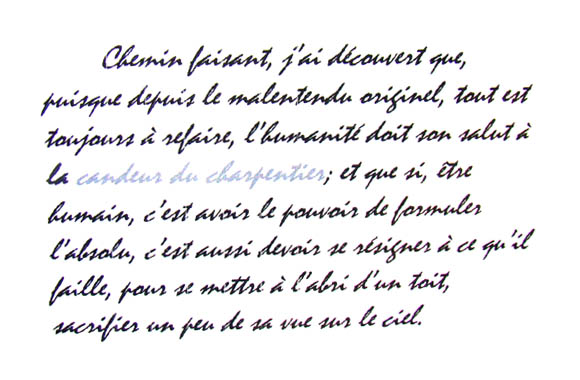 Chemin faisant, j'ai découvert que,
puisque depuis le malentendu originel, tout est
toujours à refaire, l'humanité doit son salut à
la candeur du charpentier; et que si, être
humain, c'est avoir le pouvoir de formuler
l'absolu, c'est aussi devoir se résigner à ce qu'il
faille, pour se mettre à l'abri d'un toit,
sacrifier un peu de sa vue sur le ciel.